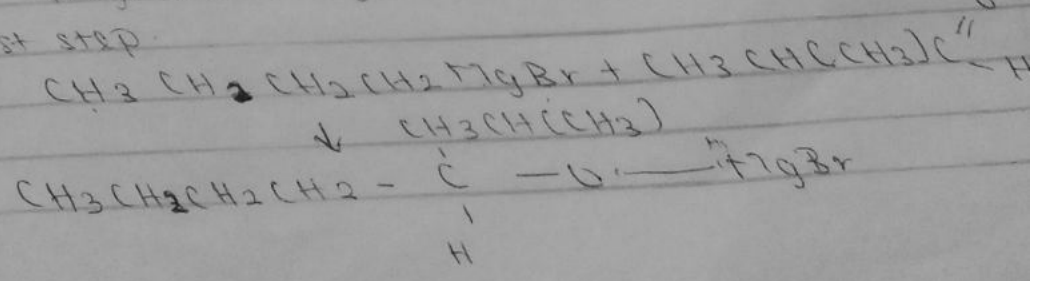 st step.
CH3 CH2 CH2 CH2 MgBr + CH3 CH(CH3)C - H
↓ CH3CH(CH3)
CH3CH2CH2CH2 - C - O - MgBr
H